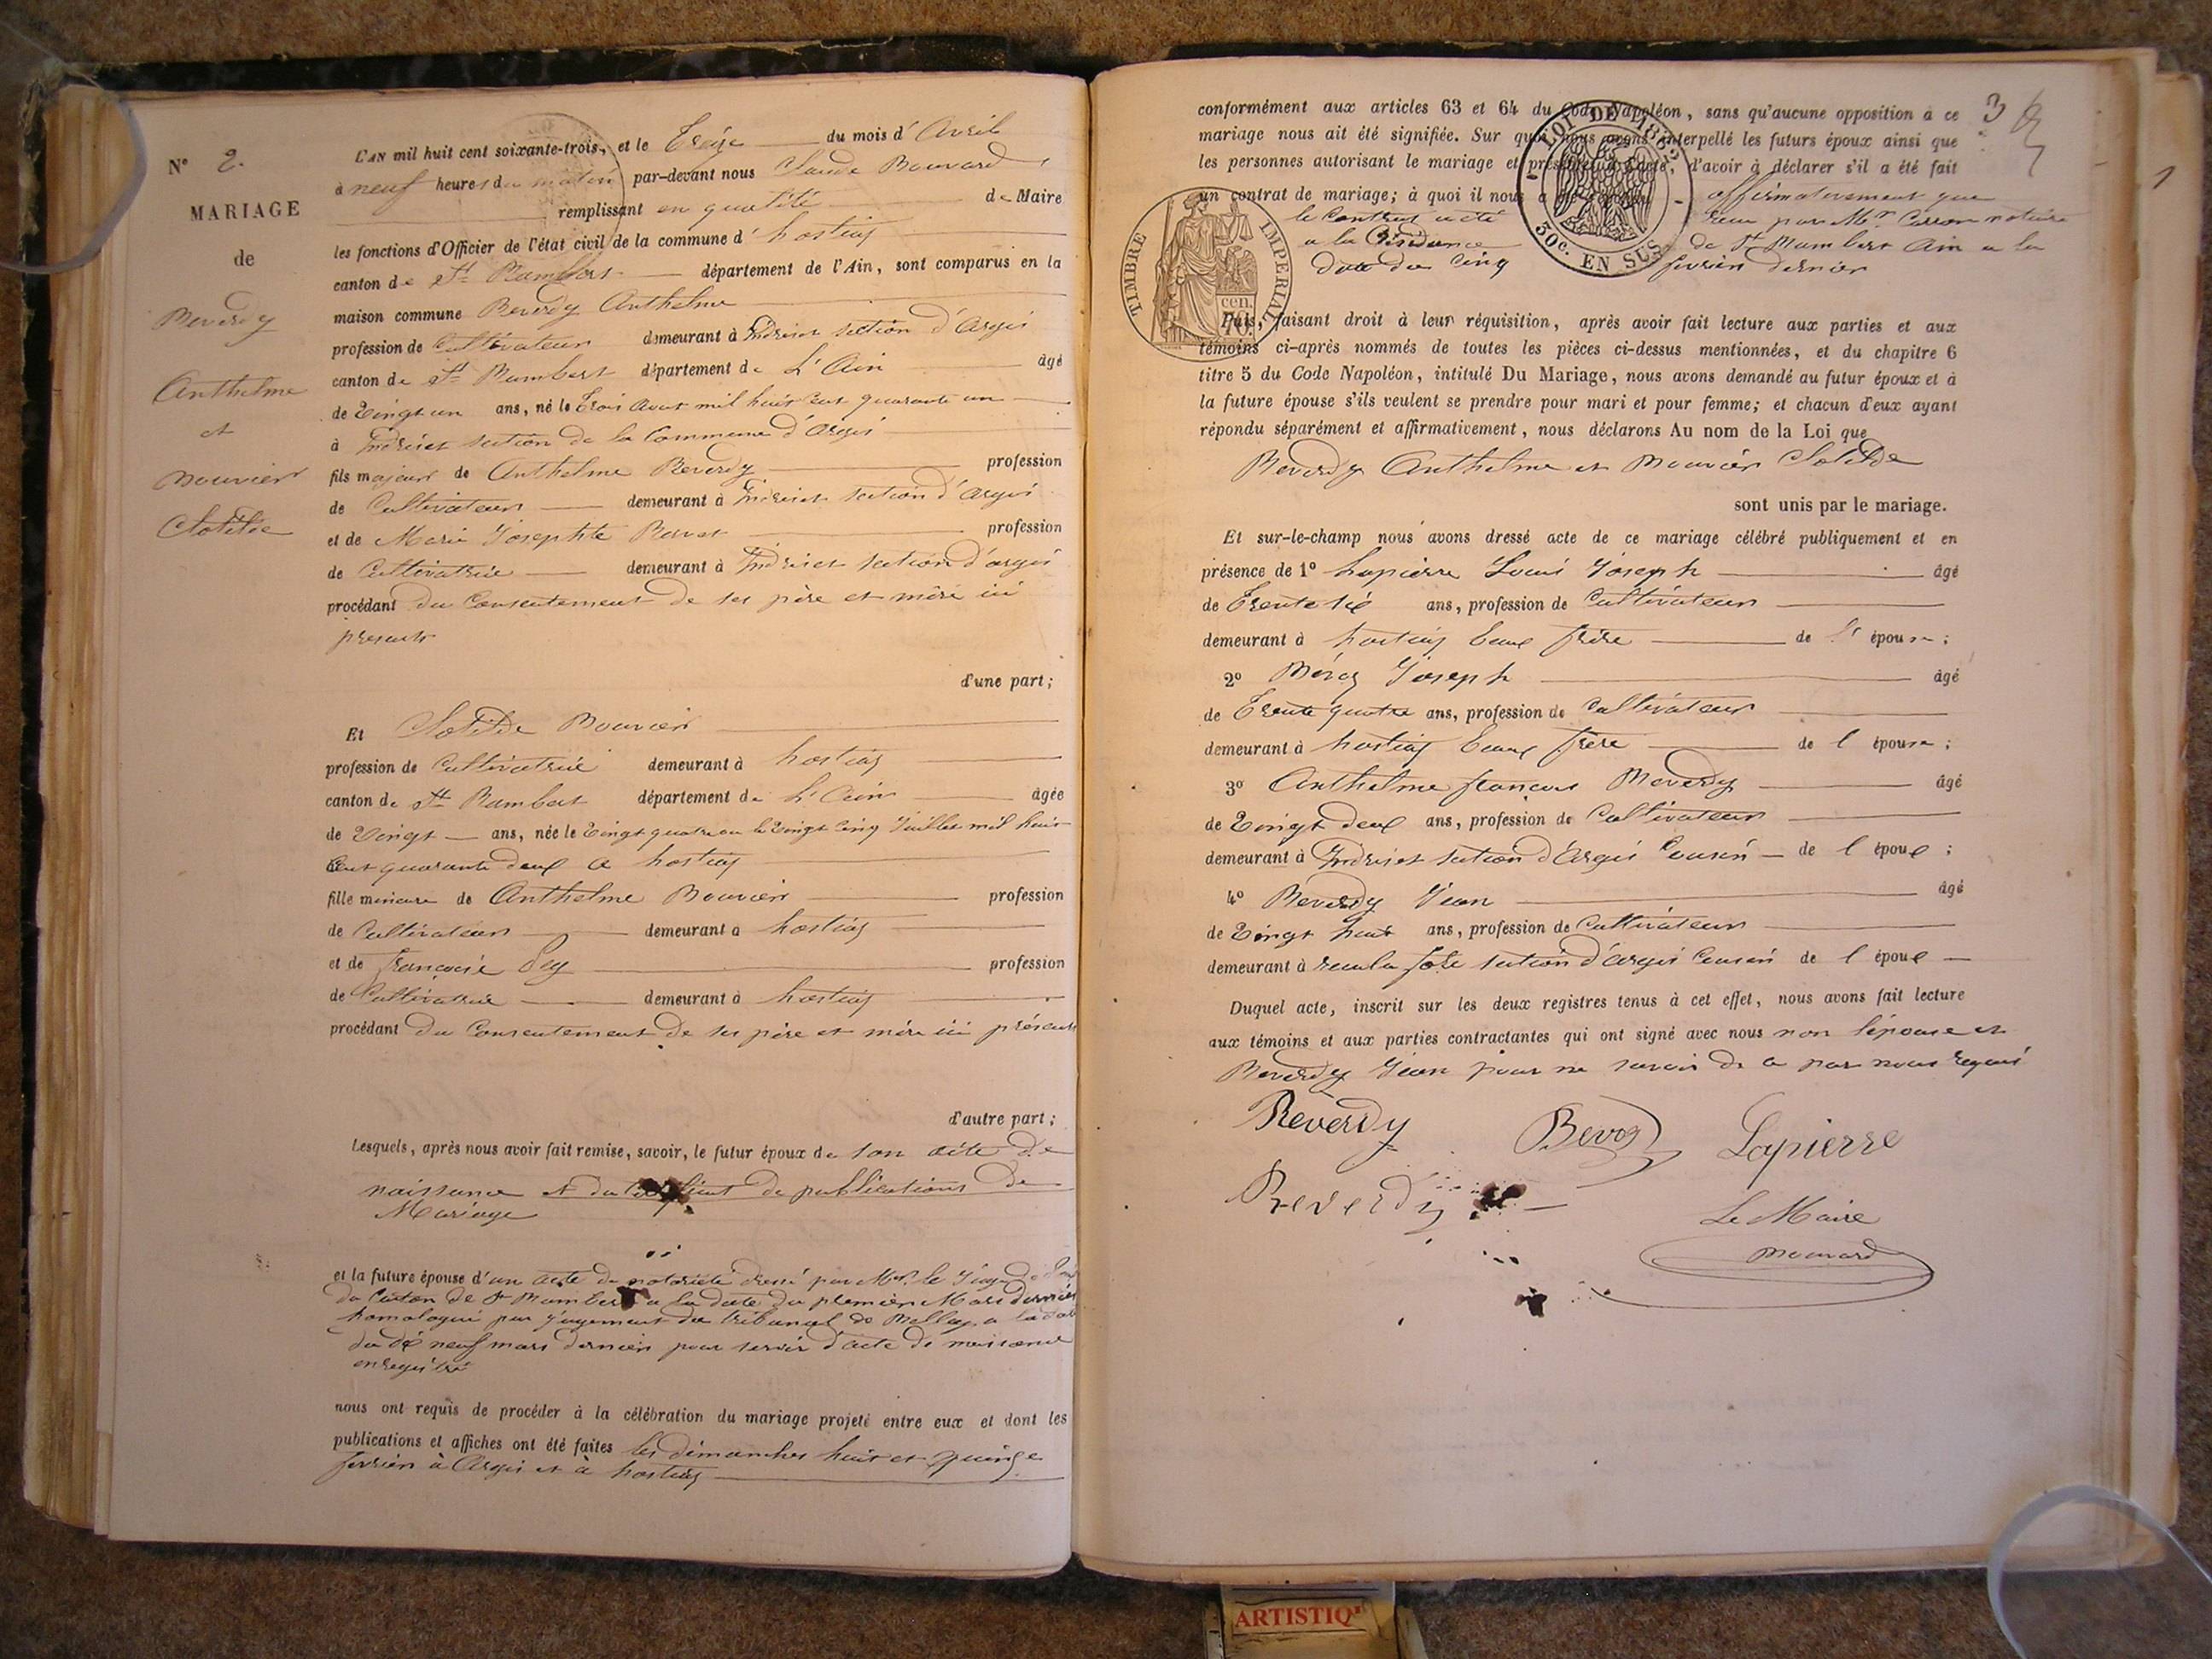 N° 2.
MARIAGE
de
Reverdy
Anthelme
et
Bouvier
Clotilde
L'AN mil huit cent soixante-trois, et le Treize du mois d' Avril
à neuf heures du matin par-devant nous Claude Bouvard
remplissant en qualité de Maire
les fonctions d'Officier de l'état civil de la commune d' hostiaz
canton de St Rambert département de l'Ain, sont comparus en la
maison commune Reverdy Anthelme
profession de Cultivateur demeurant à Indrieux section d'argis
canton de St Rambert département de L'Ain âgé
de vingt un ans, né le trois aout mil huit cent quarante un
à Indrieux section de la Commune d'Argis
fils majeur de Anthelme Reverdy profession
de Cultivateur demeurant à Indrieux section d'argis
et de Marie Josephte Ravet profession
de Cultivatrice demeurant à Indrieux section d'argis
procédant du Consentement de ses père et mère ici
presents
d'une part;
Et Clotilde Bouvier
profession de Cultivatrice demeurant à hostiaz
canton de St Rambert département de L'Ain âgée
de vingt ans, née le vingt quatre ou le vingt cinq Juillet mil huit
cent quarante deux a hostiaz
fille mineure de Anthelme Bouvier profession
de Cultivateur demeurant à hostiaz
et de françoise profession
de Cultivatrice demeurant à hostiaz
procédant du Consentement de ses père et mère ici présents
d'autre part;
Lesquels, après nous avoir fait remise, savoir, le futur époux de son acte de
naissance et du certificat de publications de
Mariage
et la future épouse d'un acte de notoriété dressé par Mr. le Juge de Paix
du Canton de St Rambert a la date du premier Mars dernier
homologué par jugement du tribunal de Belley a la date
du dix neuf mars dernier pour servir d'acte de naissance
enregistré
nous ont requis de procéder à la célébration du mariage projeté entre eux et dont les
publications et affiches ont été faites les dimanches huit et quinze
fevrier à Argis et à hostiaz
3
1
conformément aux articles 63 et 64 du Code Napoléon, sans qu'aucune opposition à ce
mariage nous ait été signifiée. Sur quoi nous avons interpellé les futurs époux ainsi que
les personnes autorisant le mariage et présentes à l'acte, d'avoir à déclarer s'il a été fait
un contrat de mariage; à quoi il nous a été répondu affirmativement que
le Contrat a été recu par Mr. notaire
a la Résidence de St Rambert Ain a la
date du cinq fevrier dernier
LOI DE 1862
50c. EN SUS
TIMBRE IMPERIAL
cen.
Puis, faisant droit à leur réquisition, après avoir fait lecture aux parties et aux
témoins ci-après nommés de toutes les pièces ci-dessus mentionnées, et du chapitre 6
titre 5 du Code Napoléon, intitulé Du Mariage, nous avons demandé au futur époux et à
la future épouse s'ils veulent se prendre pour mari et pour femme; et chacun d'eux ayant
répondu séparément et affirmativement, nous déclarons Au nom de la Loi que
Reverdy Anthelme et Bouvier Clotilde
sont unis par le mariage.
Et sur-le-champ nous avons dressé acte de ce mariage célébré publiquement et en
présence de 1° Lapierre Louis Joseph âgé
de Trente six ans, profession de Cultivateur
demeurant à hostiaz beau frère de l' épouse;
2° Bévoz Joseph âgé
de Trente quatre ans, profession de Cultivateur
demeurant à hostiaz beau frère de l épouse;
3° Anthelme francois Reverdy âgé
de vingt deux ans, profession de Cultivateur
demeurant à Indrieux section d'Argis Cousin de l époux;
4° Reverdy Jean âgé
de vingt huit ans, profession de Cultivateur
demeurant à section d'argis Cousin de l époux
Duquel acte, inscrit sur les deux registres tenus à cet effet, nous avons fait lecture
aux témoins et aux parties contractantes qui ont signé avec nous non l'épouse et
Reverdy Jean pour ne savoir de ce par nous requis
Reverdy Bevoz Lapierre
Reverdy
Le Maire
Bouvard
ARTISTIQ